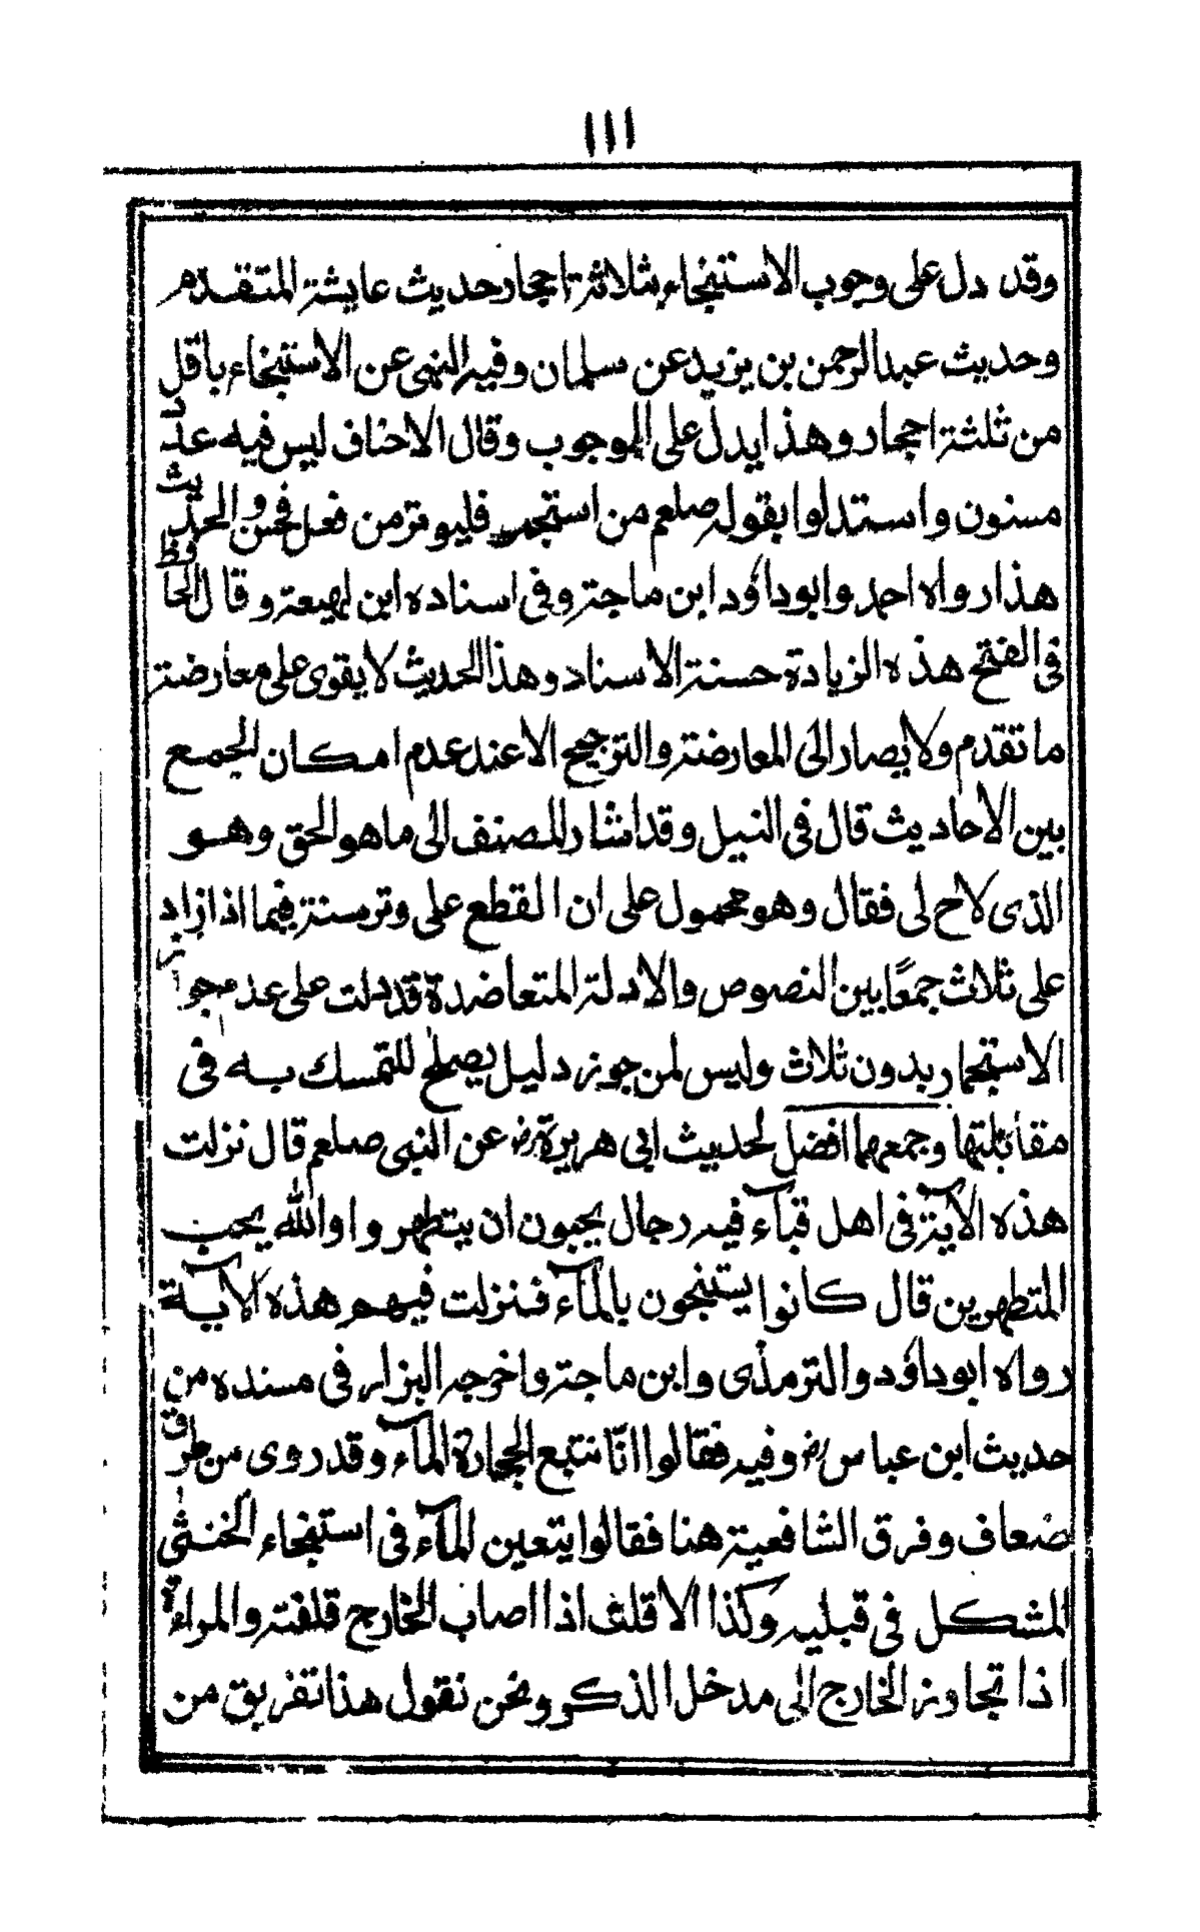 ١١١
وقد دل على وجوب الاستنجاء بثلاثة احجار حديث عايشة المتقدم
وحديث عبد الرحمن بن يزيد عن سلمان وفيه النهى عن الاستنجاء باقل
من ثلثة احجار وهذا يدل على الوجوب وقال الاحناف ليس فيه عدد
مسنون واستدلوا بقوله صلعم من استجمر فليوتر من فعل فحسن والحديث
هذا رواه احمد وابو داؤد ابن ماجة وفى اسناده ابن لهيعة وقال الحافظ
فى الفتح هذه الزيادة حسنة الاسناد وهذا الحديث لا يقوى على معارضة
ما تقدم ولا يصار الى المعارضة والترجيح الا عند عدم امكان الجمع
بين الاحاديث قال فى النيل وقد اشار المصنف الى ما هو الحق وهو
الذى لاح لى فقال وهو محمول على ان القطع على وتر سنة فيما اذا زاد
على ثلاث جمعًا بين النصوص والادلة المتعاضدة قد دلت على عدم جواز
الاستجمار بدون ثلاث وليس لمن جوز دليل يصلح للتمسك به فى
مقابلتها وجمعهما افضل لحديث ابى هريرة رض عن النبى صلعم قال نزلت
هذه الآية فى اهل قبآء فيه رجال يحبون ان يتطهروا والله يحب
المتطهرين قال كانوا يستنجون بالمآء فنزلت فيهم هذه الآية
رواه ابو داؤد والترمذى وابن ماجة واخرجه البزار فى مسنده من
حديث ابن عباس رض وفيه فقالوا انّا نتبع الحجارة المآء وقد روى من طرق
ضعاف وفرق الشافعية هنا فقالوا يتعين المآء فى استنجاء الخنثى
المشكل فى قبليه وكذا الاقلف اذا اصاب الخارج قلفته والمراءة
اذا تجاوز الخارج الى مدخل الذكر ونحن نقول هذا تفريق من